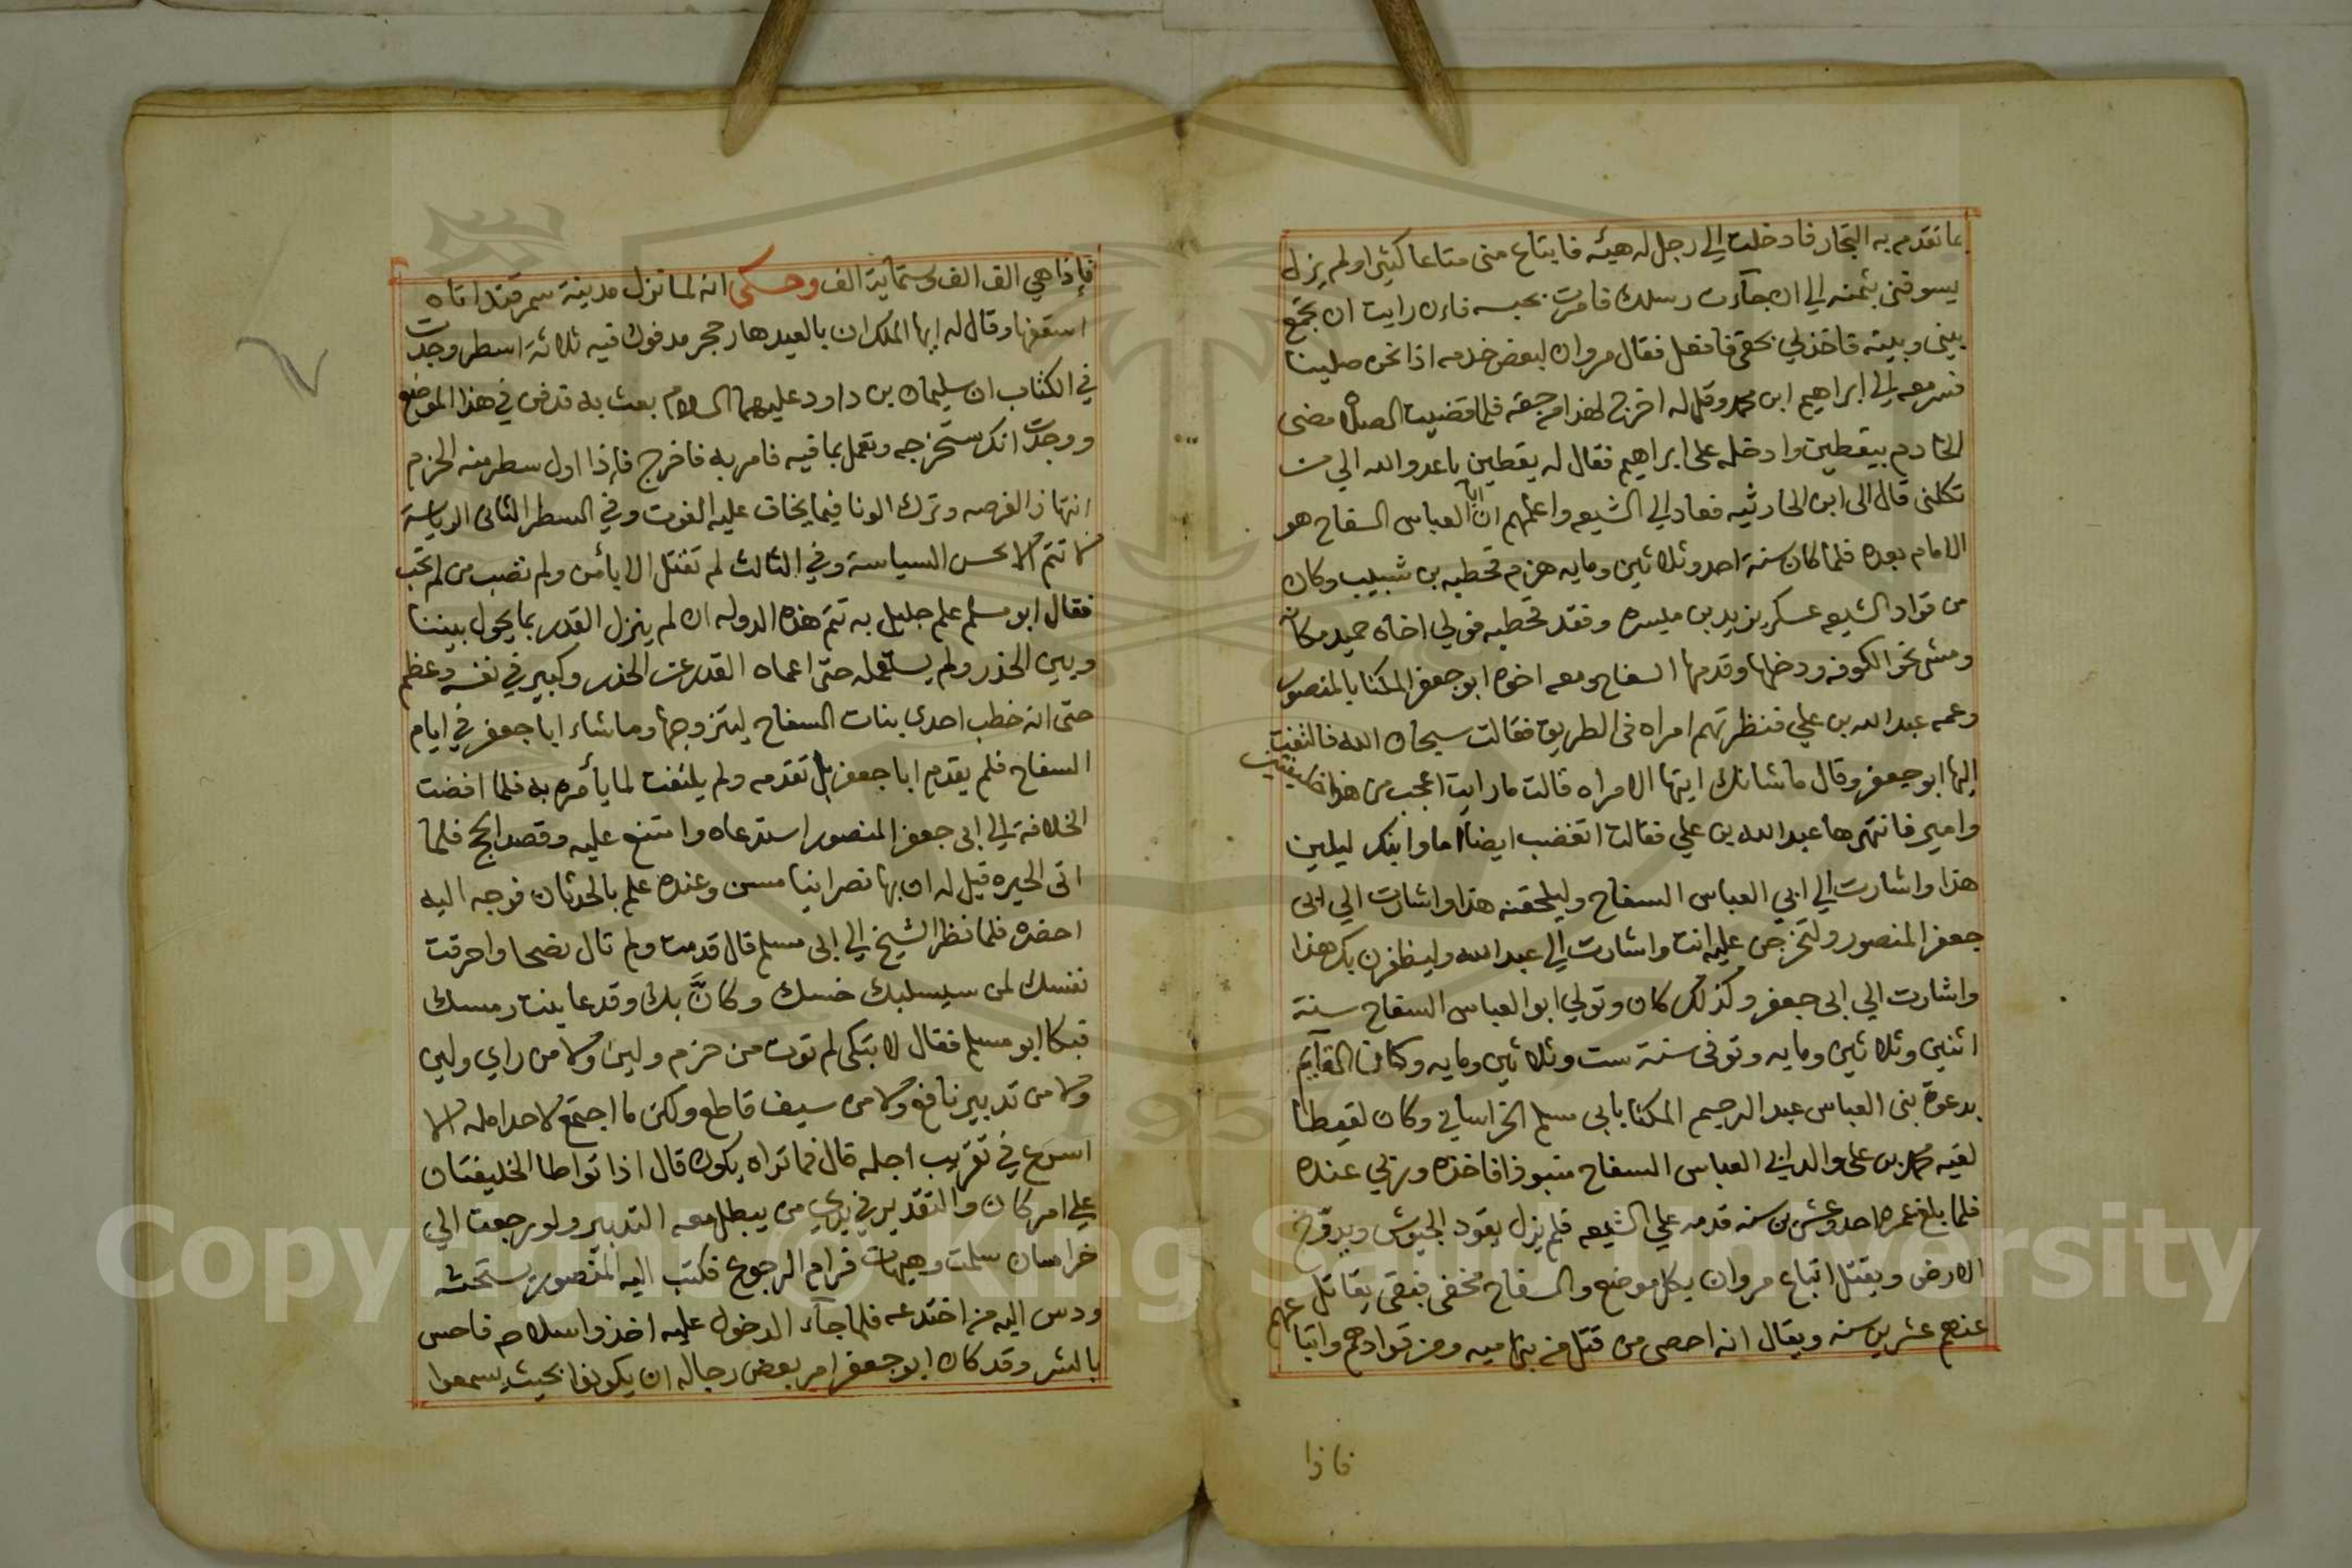 بما تقدم به التجار فادخلت الي رجل له هيئه فابتاع مني متاعا كثيرا ولم يزل
يسوفني بثمنه الي ان جآءت رسلك فامرت بحبسه فان رايت ان تجمع
بيني وبينه فتاخذ لي بحقي فافعل فقال مروان لبعض خدمه اذا نحن صلينا
فسر معه الي ابراهيم ابن محمد وقل له اخرج لهذا من حقه فلما قضيت الصلاه مضى
الخادم بيقطين وادخله على ابراهيم فقال له يقطين يا عدو الله الي من
تكلني قال الى ابن الحارثيه فعاد الي الشيعه واعلمهم ان ابا العباس السفاح هو
الامام بعده فلما كان سنة احد وثلاثين ومايه هزم قحطبه بن شبيب وكان
من قواد الشيعه عسكر يزيد بن ميسره وفقد قحطبه فولي اخاه حميد مكانه
ومشى نحو الكوفه ودخلها وقدمها السفاح ومعه اخوه ابو جعفر المكنا بالمنصور
وعمه عبد الله بن علي فنظرتهم امراه في الطريق فقالت سبحان الله فالتفت
اليها ابو جعفر وقال ما شانك ايتها الامراه قالت ما رايت اعجب من هذا خليفتين
وامير فانتهرها عبد الله بن علي فقالت اتغضب ايضا اما وابنكر ليلين
هذا واشارت الي ابي العباس السفاح وليلحقنه هذا واشارت الي ابى
جعفر المنصور ولتخرجن عليه انت واشارت الي عبد الله وليظفرن بك هذا
واشارت الي ابى جعفر وكذلك كان وتولي ابو العباس السفاح سنة
اثنين وثلاثين ومايه وتوفى سنة ست وثلاثين ومايه وكان القآيم
بدعوة بنى العباس عبد الرحيم المكنا بابى مسلم الخراساني وكان لقيطا
لقيه محمد بن على والد ابي العباس السفاح منبوذا فاخذه وربي عنده
فلما بلغ عمره احد وعشرين سنه قدمه علي الشيعه فلم يزل يقود الجيوش ويدوخ
الارض ويقتل اتباع مروان بكل موضع والسفاح مخفى فبقى يقاتل
عنهم عشرين سنه ويقال انه احصى من قتل من بنى اميه ومن قوادهم واتباعهم
فاذا
فإذا هي الف الف وستماية الف وحكى انه لما نزل مدينة سمرقند اتاه
اسقفها وقال له ايها الملك ان بالعيد هار حجر مدفون فيه ثلاثة اسطر وجدت
في الكتاب ان سليمان بن داود عليهما السلام بعث به قد فن في هذا الموضع
ووجدت انك ستخرجه وتعمل بما فيه فامر به فاخرج فاذا اول سطر منه الحزم
انتهاز الفرصه وترك الونا فيما يخاف عليه الفوت وفي السطر الثاني الرياسة
لا تتم الا بحسن السياسة وفي الثالث لم تقتل الابامن ولم تصب من لم تجب
فقال ابو مسلم علم جليل به تتم هذه الدوله ان لم ينزل القدر بما يحول بيننا
وبين الحذر ولم يستعمله حتى اعماه القدر عن الحذر وكبير في نفسه وعظم
حتى انه خطب احدى بنات السفاح ليتزوجها وماشاء ابا جعفر في ايام
السفاح فلم يقدم ابا جعفر بل تقدمه ولم يلتفت لما يأمره به فلما افضت
الخلافة الي ابى جعفر المنصور استدعاه وامتنع عليه وقصد الحج فلما
اتى الحيره قيل له ان بها نصرانيا مسن وعنده علم بالحدثان فوجه اليه
احضره فلما نظر الشيخ الي ابى مسلم قال قدمت ولم تال نصحا واحرقت
نفسك لمن سيسلبك خسك وكانَّ بك وقد عاينت رمسك
فبكا ابو مسلم فقال لا تبكى لم توت من حزم ولين ولا من راي ولين
ولا من تدبير نافع ولا من سيف قاطع ولكن ما اجتمع لاحد امله الا
اسرع في تقريب اجله قال فما تراه يكون قال اذا تواطا الخليفتان
علي امر كان والتقدير في يدي من يبطل معه التدبير ولو رجعت الي
خراسان سلمت وهيهات فرام الرجوع فكتب اليه المنصور يستحثه
ودس اليه من اختدعه فلما جآء الدخول عليه اخذوا سلاحه فاحس
بالشر وقد كان ابو جعفر امر بعض رجاله ان يكونوا بحيث يسمعوا
Copyright © King Saud University
1957